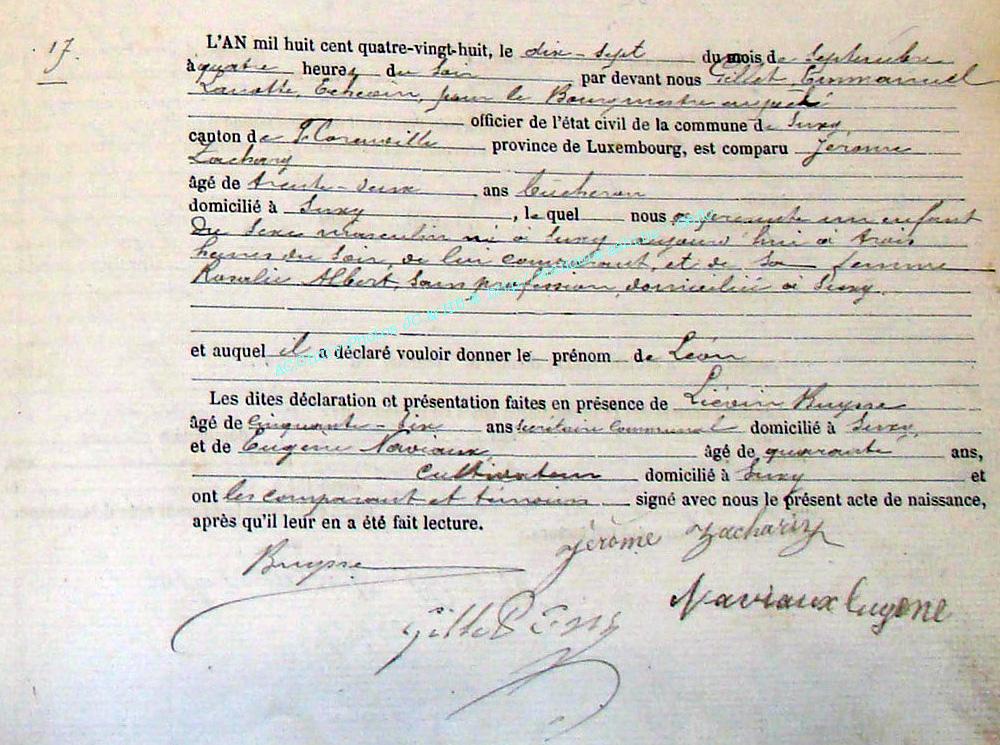 17
L'AN mil huit cent quatre-vingt-huit, le dix-sept du mois de Septembre
à quatre heures du soir par devant nous Gillet Emmanuel
Echevin, pour le Bourgmestre empêché
officier de l'état civil de la commune de Suxy,
canton de Florenville province de Luxembourg, est comparu Jérome
Zachary
âgé de trente-deux ans bûcheron
domicilié à Suxy, lequel nous a présenté un enfant
du sexe masculin né à Suxy aujourd'hui à trois
heures du soir, de lui comparant, et de sa femme
Rosalie Albert, sans profession, domiciliée à Suxy.
et auquel il a déclaré vouloir donner le prénom de Léon
Les dites déclaration et présentation faites en présence de Liévin Buysse
âgé de cinquante-six ans secrétaire communal domicilié à Suxy,
et de Eugène Naviaux, âgé de quarante ans,
cultivateur domicilié à Suxy et
ont les comparant et témoins signé avec nous le présent acte de naissance,
après qu'il leur en a été fait lecture.
Buysse Jérôme Zachariy
Naviaux Eugene
Gillet